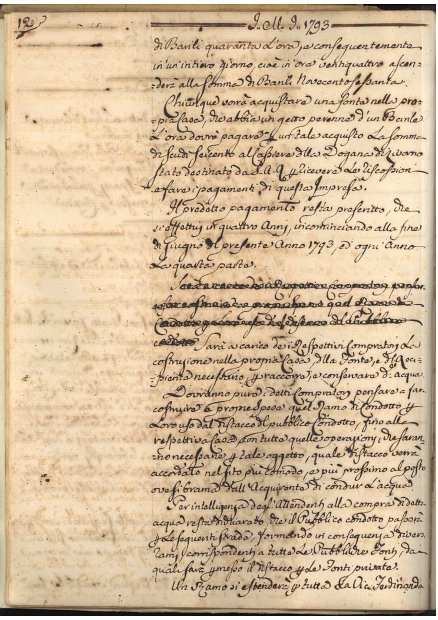 12
J. M. J. 1793
di Barili quaranta L'ora, e conseguentemente
in un' intiero giorno, cioè in ore ventiquattro ascen-
derà alla somma di Barili Novecentosessanta.
Chiunque vorà acquistare una fonte nella pro-
pria Casa, che abbia un getto perenne d'un Barile
L'ora dovrà pagare p. un tale acquisto La somma
di Scudi Seicento al Cassiere della Dogana di
stato destinato da S. A. R. p. ricevere Le riscossioni
e fare i pagamenti di questa Impresa.
Il predetto pagamento resta prescritto, che
si effettui in quattro Anni, incominciando alla fine
di Giugno del presente Anno 1793, ed ogni Anno
La quarta parte.
Sarà a carico de i Respettivi Compratori La
costruzione nella propria Casa della Fonte, e del Reci-
piente necessario p. raccorre, e conservare d.a acqua.
Dovranno pure i detti Compratori pensare a far
costruire a proprie spese quel Ramo di Condotto p.
Loro uso dal distacco del pubblico Condotto, fino alle
respettive Case, con tutte quelle operazioni, che saran-
no necessarie p. tale oggetto, quale distacco verrà
accordato nel sito più comodo, e più prossimo al posto
ove si brama dall'Acquirente di condur L'acqua.
Per intelligenza degl'Attendenti alla compra di detta
acqua resta dichiarato che il Pubblico condotto passerà
p. Le seguenti strade, formando in conseguenza diversi
rami corrispondenti a tutte Le Pubbliche Fonti, da
quali sarà p.messo il distacco p. Le Fonti private.
Un Ramo si estenderà p. tutta La Via Ferdinanda